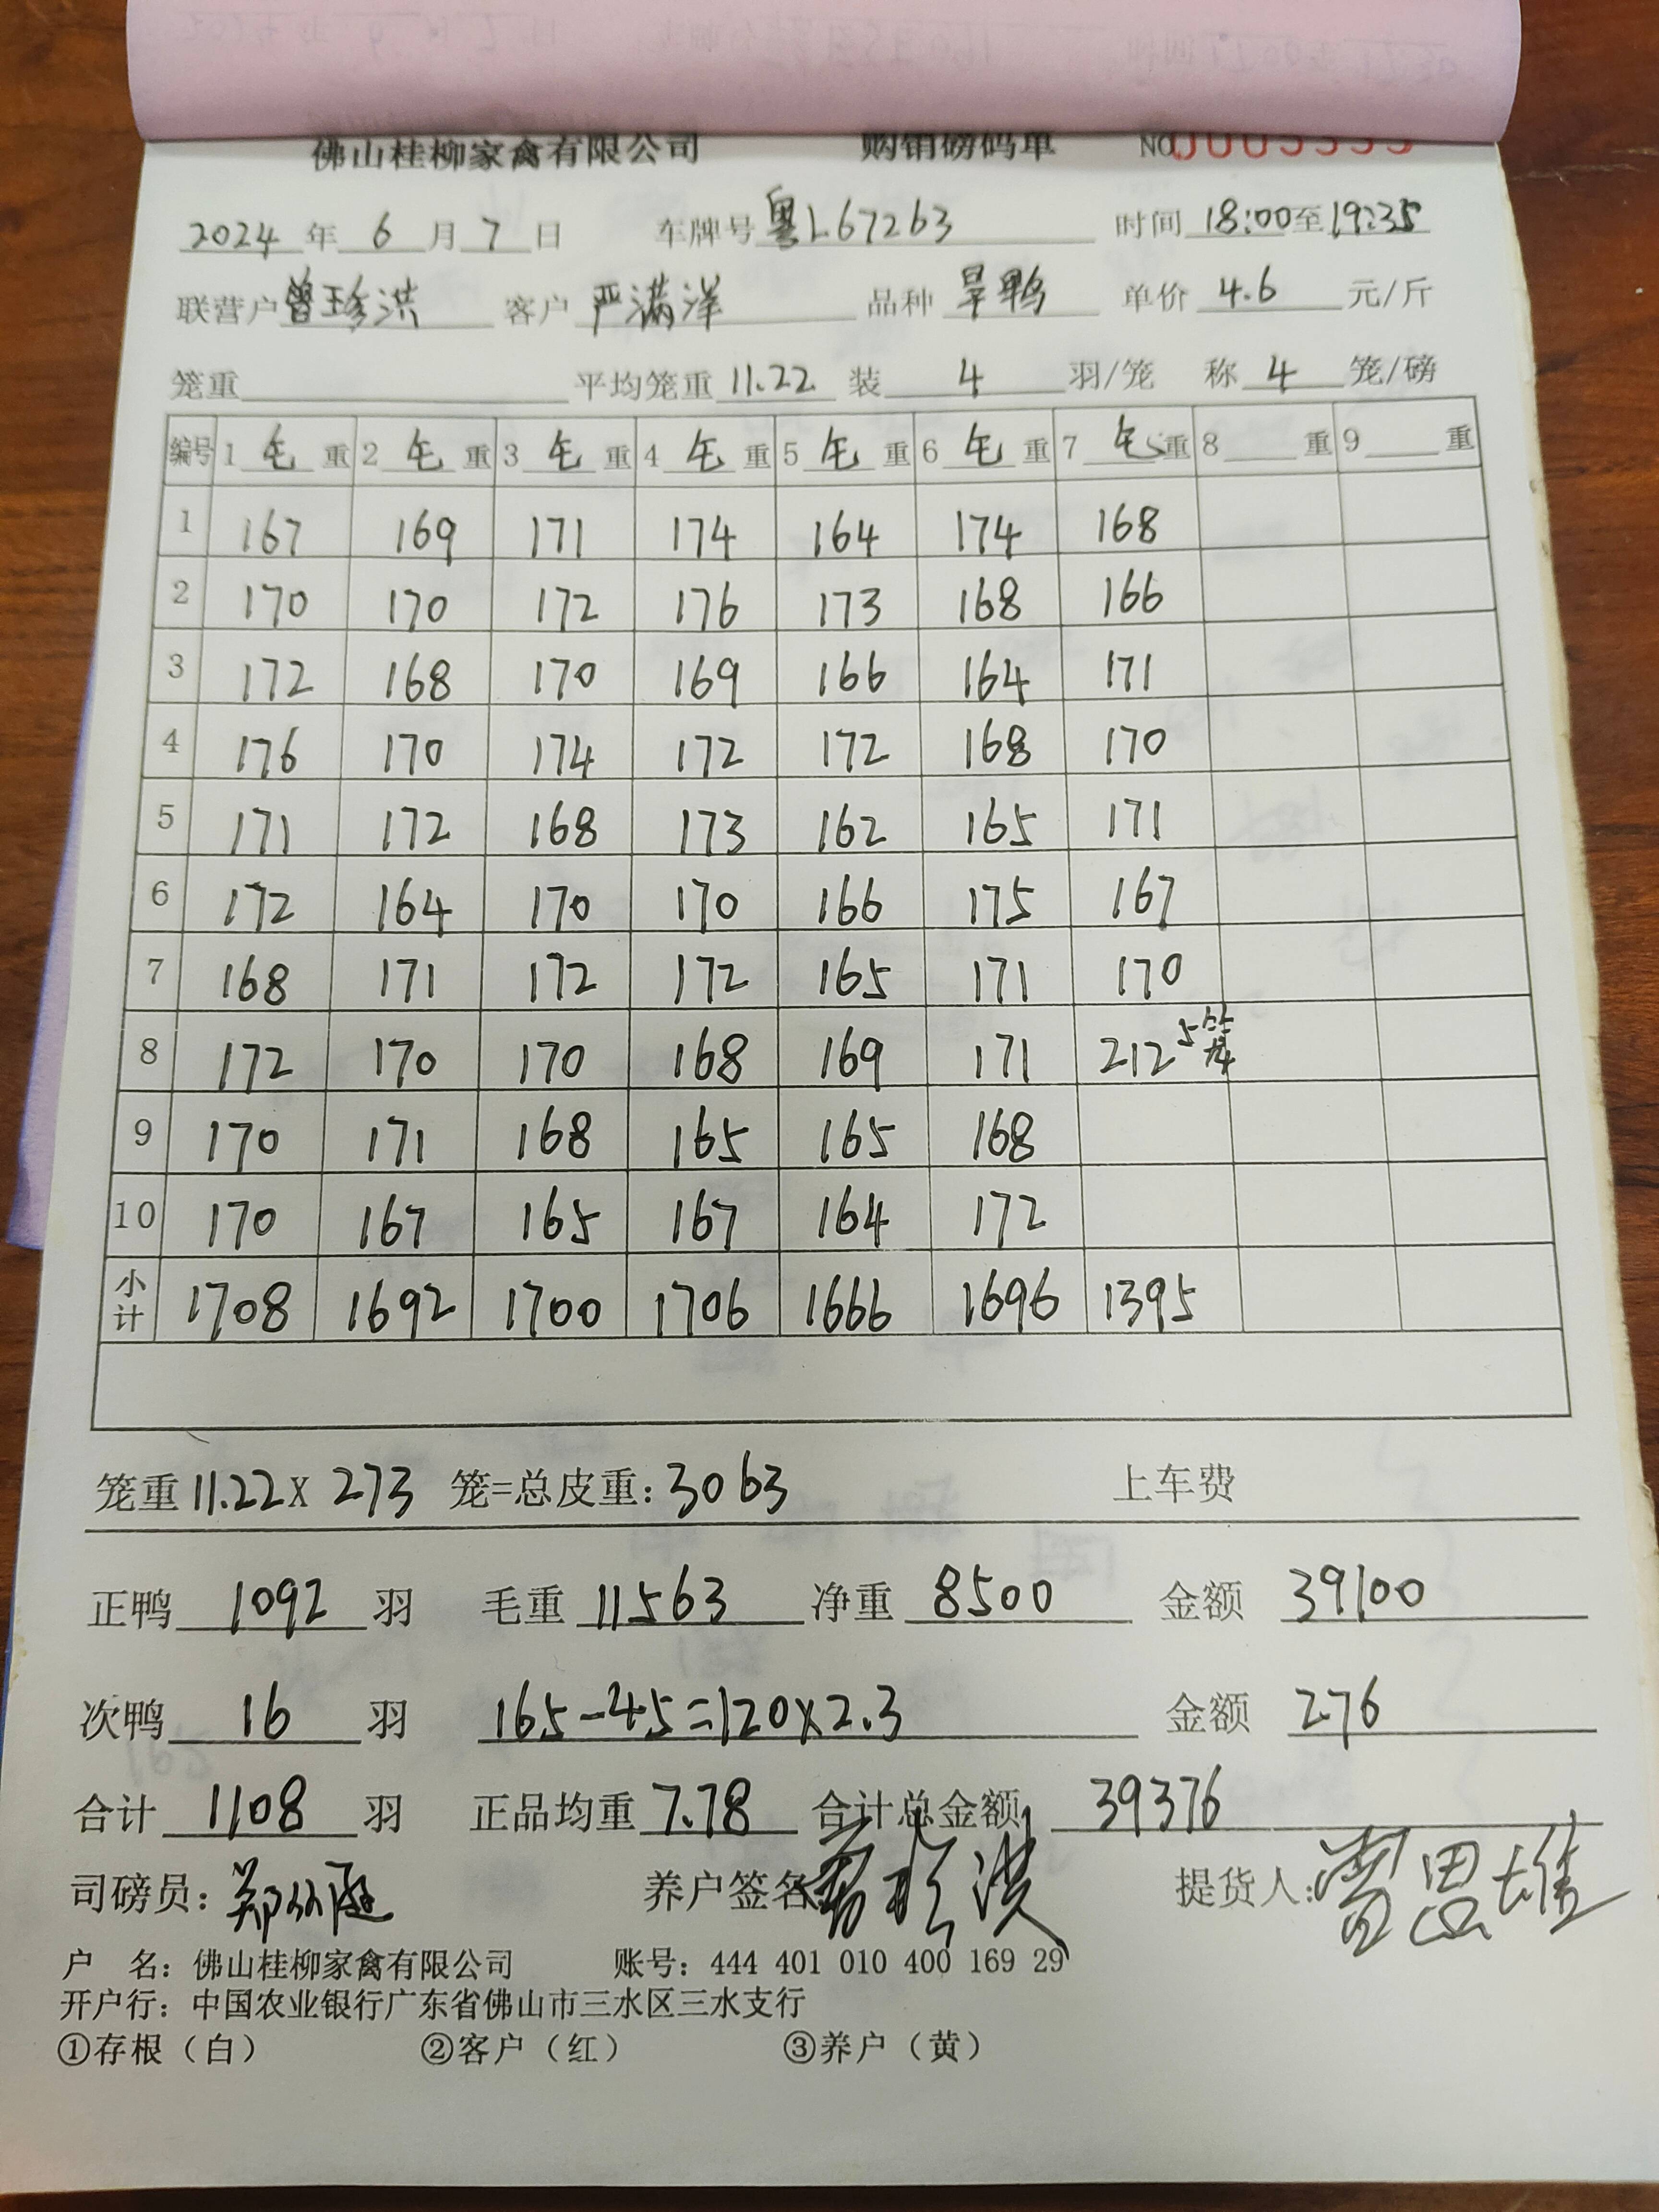 佛山桂柳家禽有限公司 购销磅码单 NO
2024 年 6 月 7 日 车牌号 粤L67263 时间 18:00至19:35
联营户 曾珍洪 客户 严满洋 品种 旱鸭 单价 4.6 元/斤
笼重 平均笼重 11.22 装 4 羽/笼 称 4 笼/磅
编号 1 毛 重 2 毛 重 3 毛 重 4 毛 重 5 毛 重 6 毛 重 7 毛 重 8 重 9 重
1 167 169 171 174 164 174 168
2 170 170 172 176 173 168 166
3 172 168 170 169 166 164 171
4 176 170 174 172 172 168 170
5 171 172 168 173 162 165 171
6 172 164 170 170 166 175 167
7 168 171 172 172 165 171 170
8 172 170 170 168 169 171 212 5笼
9 170 171 168 165 165 168
10 170 167 165 167 164 172
小计 1708 1692 1700 1706 1666 1696 1395
笼重 11.22 X 273 笼=总皮重: 3063 上车费
正鸭 1092 羽 毛重 11563 净重 8500 金额 39100
次鸭 16 羽 165-45=120×2.3 金额 276
合计 1108 羽 正品均重 7.78 合计总金额 39376
司磅员: 养户签名 曾珍洪 提货人:
户 名: 佛山桂柳家禽有限公司 账号: 444 401 010 400 169 29
开户行: 中国农业银行广东省佛山市三水区三水支行
①存根（白） ②客户（红） ③养户（黄）